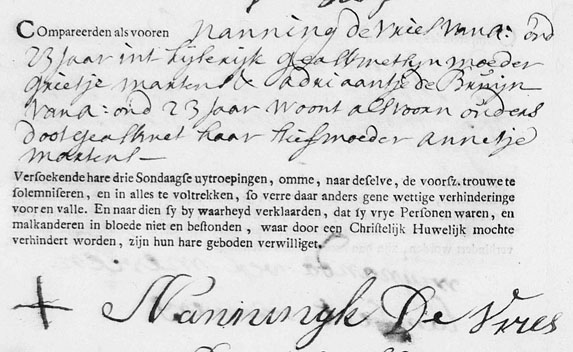 Compareerden als vooren Nanning de Vries van a: oud
23 Jaar int geass met zyn moeder
grietje martens & adriaantje de Bruyn
van a: oud 23 Jaar woont als voorn ouders
doot geassneet haar moeder annetje
martens
Versoekende hare drie Sondaagse uytroepingen, omme, naar deselve, de voorsz. trouwe te
solemniseren, en in alles te voltrekken, so verre daar anders gene wettige verhinderinge
voor en valle. En naar dien sy by waarheyd verklaarden, dat sy vrye Personen waren, en
malkanderen in bloede niet en bestonden, waar door een Christelijk Huwelijk mochte
verhindert worden, zijn hun hare geboden verwilliget.
Nanningk De Vries